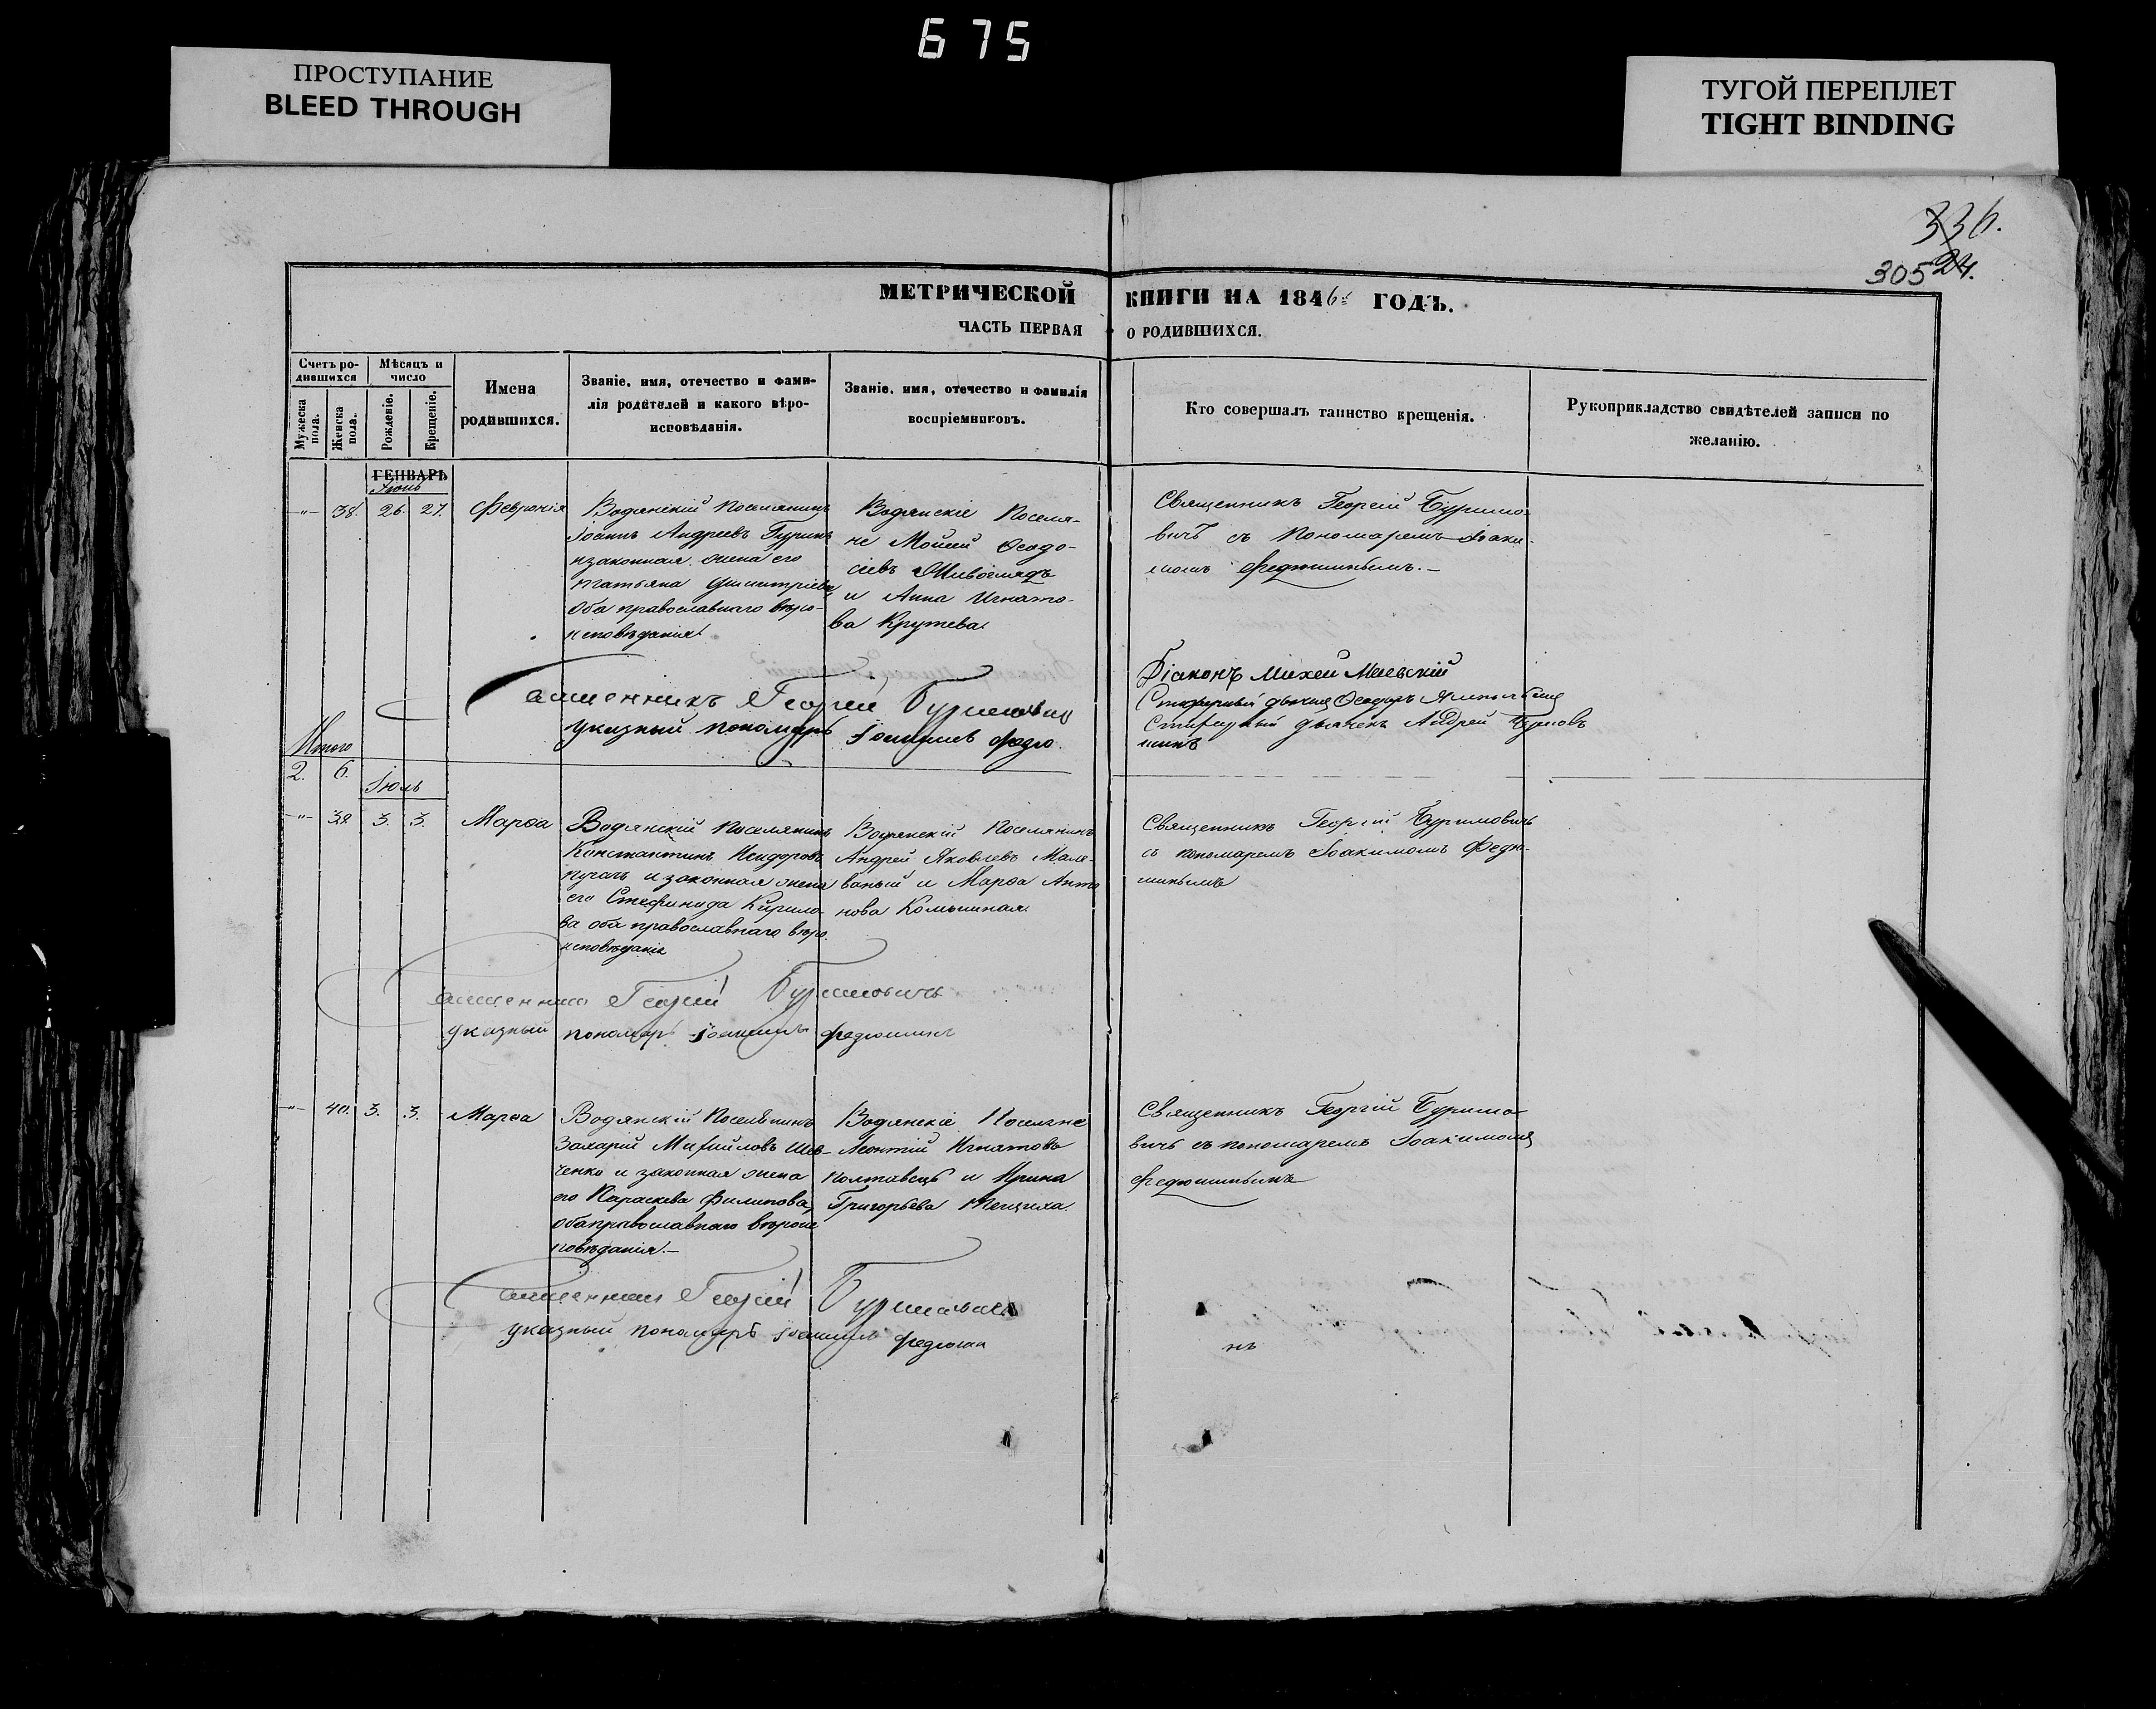 675
ПРОСТУПАНИЕ
BLEED THROUGH
ТУГОЙ ПЕРЕПЛЕТ
TIGHT BINDING
336.
305 24.
МЕТРИЧЕСКОЙ КНИГИ НА 1846й ГОДЪ.
ЧАСТЬ ПЕРВАЯ О РОДИВШИХСЯ.
Счетъ ро-
дившихся
Мѣсяцъ и
число
Мужеска
пола.
Женска
пола.
Рожденіе.
Крещеніе.
Имена
родившихся.
Званіе, имя, отечество и фами-
лія родителей и какого вѣро-
исповѣданія.
Званіе, имя, отечество и фамилія
воспріемниковъ.
Кто совершалъ таинство крещенія.
Рукоприкладство свидѣтелей записи по
желанію.
ГЕНВАРЬ
Іюнь
-"- 38. 26. 27. Февронія
Водянскій Поселянинъ
Іоаннъ Андреевъ Гуринъ
изаконная жена его
Татьяна Димитріева,
Оба православнаго вѣро-
исповѣданія.
Водянскіе Поселя-
не Мойсей Ѳеодо-
сіевъ
и Анна Игнато-
ва Крутева.
Священникъ Георгій Буримо-
вичъ съ Пономаремъ Іоаки-
момъ Федюшинымъ.-
Священникъ Георгій Буримовичъ
указный пономарь Іоакимъ Федю.
Діаконъ Михей Маевскій
дьячекъ Ѳеодоръ
дьячекъ Андрей
Итого
2. 6.
Іюль
-"- 39. 3. 3. Марѳа
Водянскій Поселянинъ
Константинъ Исидоровъ
и законная жена
его Стефанида Кирило-
ва оба православнаго вѣро-
исповѣданія
Водянскій Поселянинъ
Андрей Яковлевъ Мале-
ваный и Марѳа Анто
нова
Священникъ Георгій Буримовичъ
съ пономаремъ Іоакимомъ Федю-
шинымъ
Священникъ Георгій Буримовичъ
указный пономарь Іоакимъ Федюшинъ
-"- 40. 3. 3. Марѳа
Водянскій Поселянинъ
Захарій Михайловъ Шев-
ченко и законная жена
его Параскева Филипова,
оба православнаго вѣроис
повѣданія.-
Водянскіе Поселяне
Леонтій Игнатовъ
Полтавецъ и Ирина
Григорьева
Священникъ Георгій Буримо-
вичъ съ пономаремъ Іоакимомъ
Федюшинымъ
Священникъ Георгій Буримовичъ
указный пономарь Іоакимъ Федюши
нъ